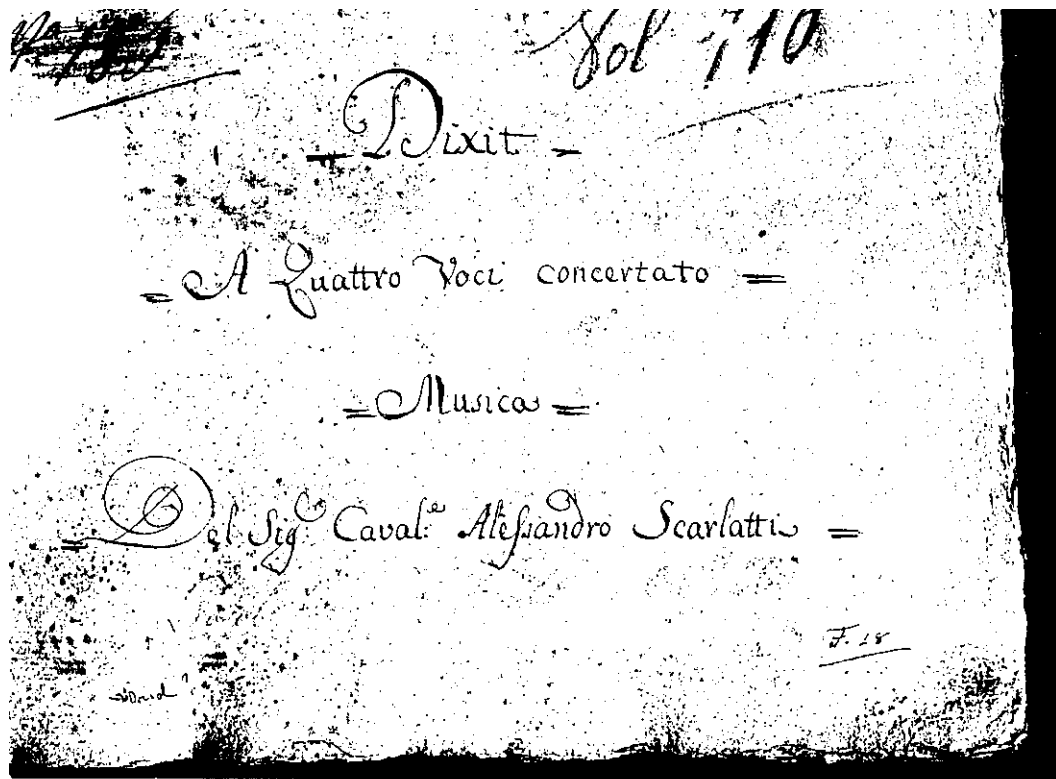 Vol 710
Dixit
A Quattro Voci concertato
Musica
Del Sig.e Caval:e Alessandro Scarlatti
F. 18